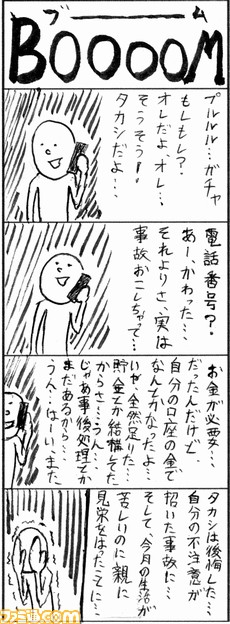 ブーム
BOOOOM
プルルル…ガチャ
もしもし？
オレだよオレ…
そうそう！
タカシだよ…
電話番号？
あーかわった…
それよりさ、実は
事故おこしちゃって…
お金が必要…
だったんだけど、
自分の口座の金で
なんとかなったよ…
いや、全然足りた…
貯金とか結構してた
からさ…うん…
じゃあ事後処理とか
まだあるから…
うん…はーい、また
タカシは後悔した…
自分の不注意が
招いた事故に…
そして、今月の生活が
苦しいのに親に
見栄をはったことに…
ファミ通.com